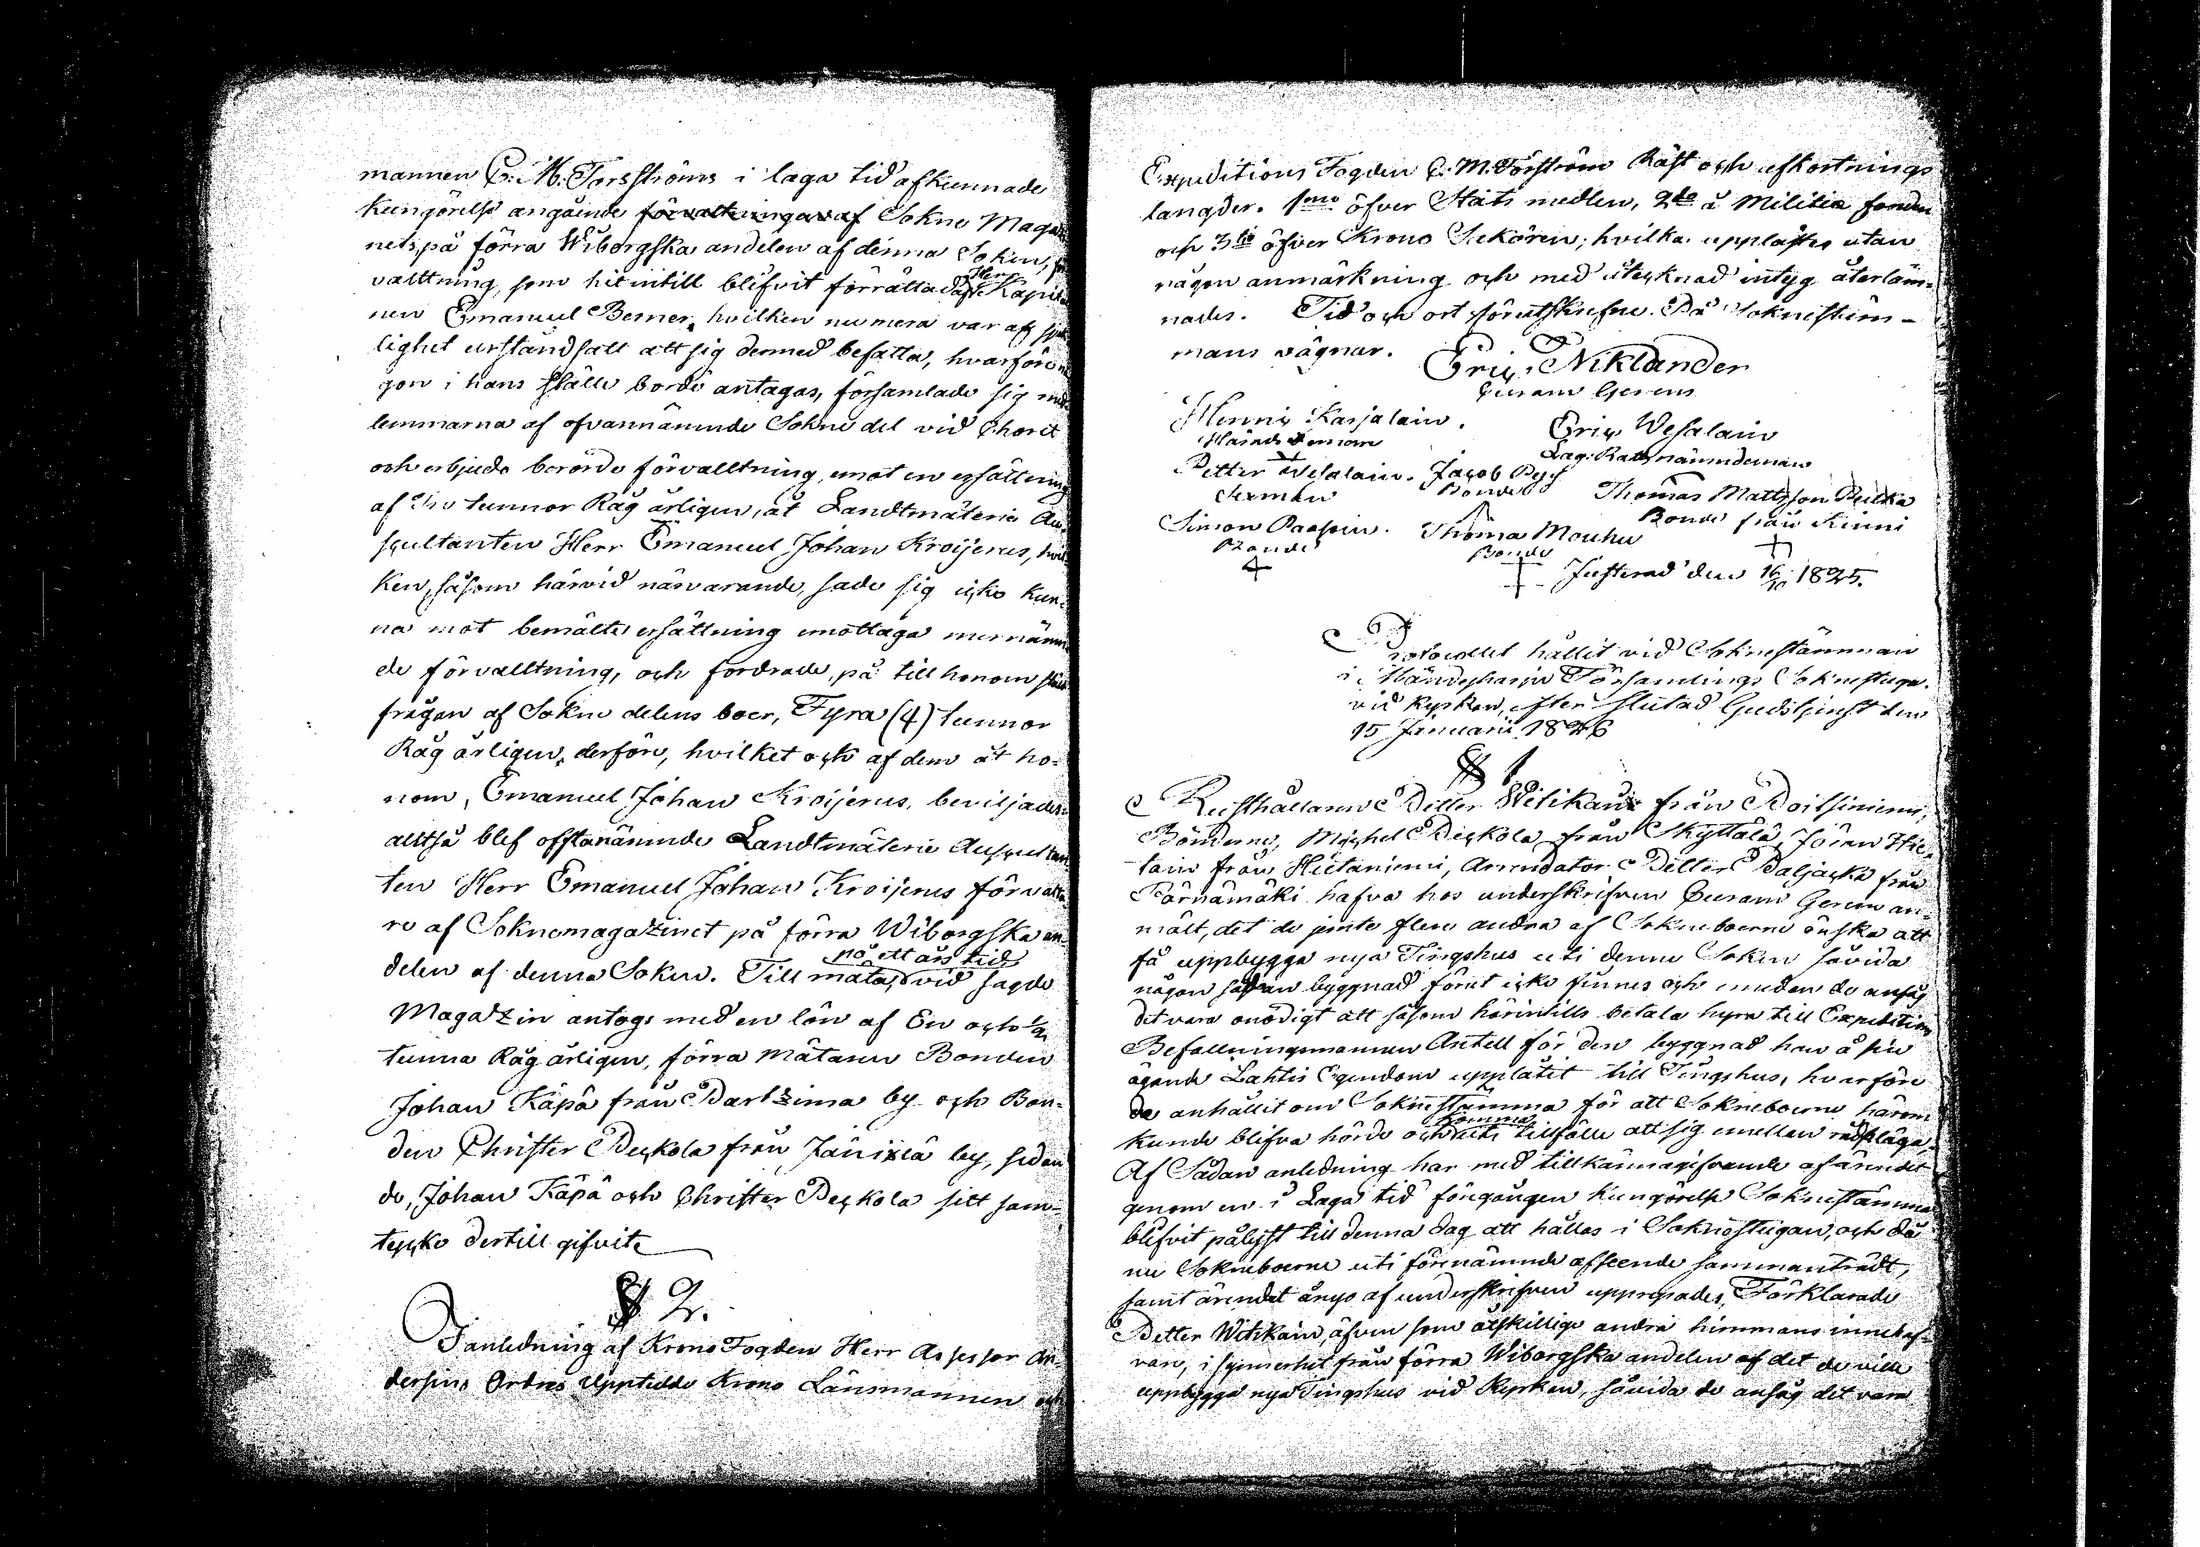 mannen C. M. Forsströms i laga tid afkunnade
kungörelse angående förvaltningen af Sokne Maga
nets, på förra Wiborgska andelen af denna Soken,
valltning, som hitintill blifvit förrättad af Herr Kapite
nen Emanuel Berner, hvilken numera var af
lighet urståndsatt att sig dermed befatta, hvarföre
gon i hans ställe borde antagas, församlade sig med
lemmarna af ofvannämnde Sokne del vid Choret
och erbjudo berörde förvalltning, emot en ersättning
af Tre tunnor Råg årligen, åt Landtmäterie Au
scultanten Herr Emanuel Johan Kroijerus, hvil
ken, såsom härvid närvarande, sade sig icke kun
na mot bemälte ersättning emottaga mernämn
de förvalltning, och fordrade, på till honom ställd
frågan af Sokne delens boer, Fyra (4) tunnor
Råg årligen, derföre, hvilket ock af dem åt ho-
nom, Emanuel Johan Kroijerus, beviljades
alltså blef offtanämnde Landtmäterie Auscultan
ten Herr Emanuel Johan Kroijerus förvalta
re af Soknemagazinet på förra Wiborgska an-
delen af denna Soken. Till mätare på ett års tid vid sagde
Magazin antogs med en lön af En och 1/2
tunna Råg årligen, förra Mätaren Bonden
Johan Käpä från Partzima by och Bon-
den Christer Peckola från Jänixlä by, sedan
de, Johan Käpä och Christer Peckola sitt sam-
tycke dertill gifvit.
§ 2.
I anledning af Krono Fogden Herr Assessor An-
dersins Ordres upptedde Krono Länsmannen och
Expeditions Fogden C. M. Forsström Räst och afkortnings
längder. 1mo öfver Stats medlen, 2do å Militie fonden
och 3tio öfver Krono Sekören; hvilka upplästes utan
någon anmärkning och med åtecknad intyg återläm-
nades. Tid och ort förutskrefne. På Soknestäm-
mans vägnar. Eric Niklander
Curam Gerens
Henric Karjalain. Eric Wesalain
Häradsdeman Lag. Rätts nämndeman
Petter Wesalain. Jacob
Sexman Bonde Thomas Mattsson Pulka
Bonde från Kinni
Simon Paapin. Thoma Mouhu
Bonde Bonde
Justerad den 16/10 1825.
Protocollet hållit vid Soknestämman
i Mändyharju Församlings Soknestuga
vid Kyrkan, efter slutad Gudstjenst den
15 Januarii 1826
§ 1
Rusthållaren Petter Witikain från Poitsiniemi,
Bönderne, Michel Peckola från Skyttälä, Jöran Hie-
tain från Hietaniemi, Arrendator Petter Paljacka från
Pärnämäki hafva hos underskrifven Curam Gerens an-
mält, det de jemte flere andra af Sokneboerne önska att
få uppbygga nya Tingshus uti denne Soken såvida
någon sådan byggnad förut icke finnes och emedan de anse
det vara onödigt att såsom härintills betala hyra till Expeditions
Befallningsmannen Antell för den byggnad han å sin
ägande Lahtis Egendom upplåtit till Tingshus, hvarföre
de anhållit om Soknestämma för att Sokneboerne härom
kunde blifva hörde och komma uti tillfälle att sig emellan rådpläga.
Af Sådan anledning har med tillkännagifvande af ärendet
genom en i Laga tid föregången kungörelse Soknestämma
blifvit pålyst till denna dag att hållas i Soknestugan, och då
nu Sokneboerne uti förenämnde afseende sammanträdt,
samt ärendet ånyo af underskrifven upprepades, Förklarade
Petter Witikain, äfven som åtskillige andra hemmans innehaf-
vare, i synnerhet från förra Wiborgska andelen af det de ville
uppbygga nya Tingshus vid Kyrkan, såvida de ansåg det vara